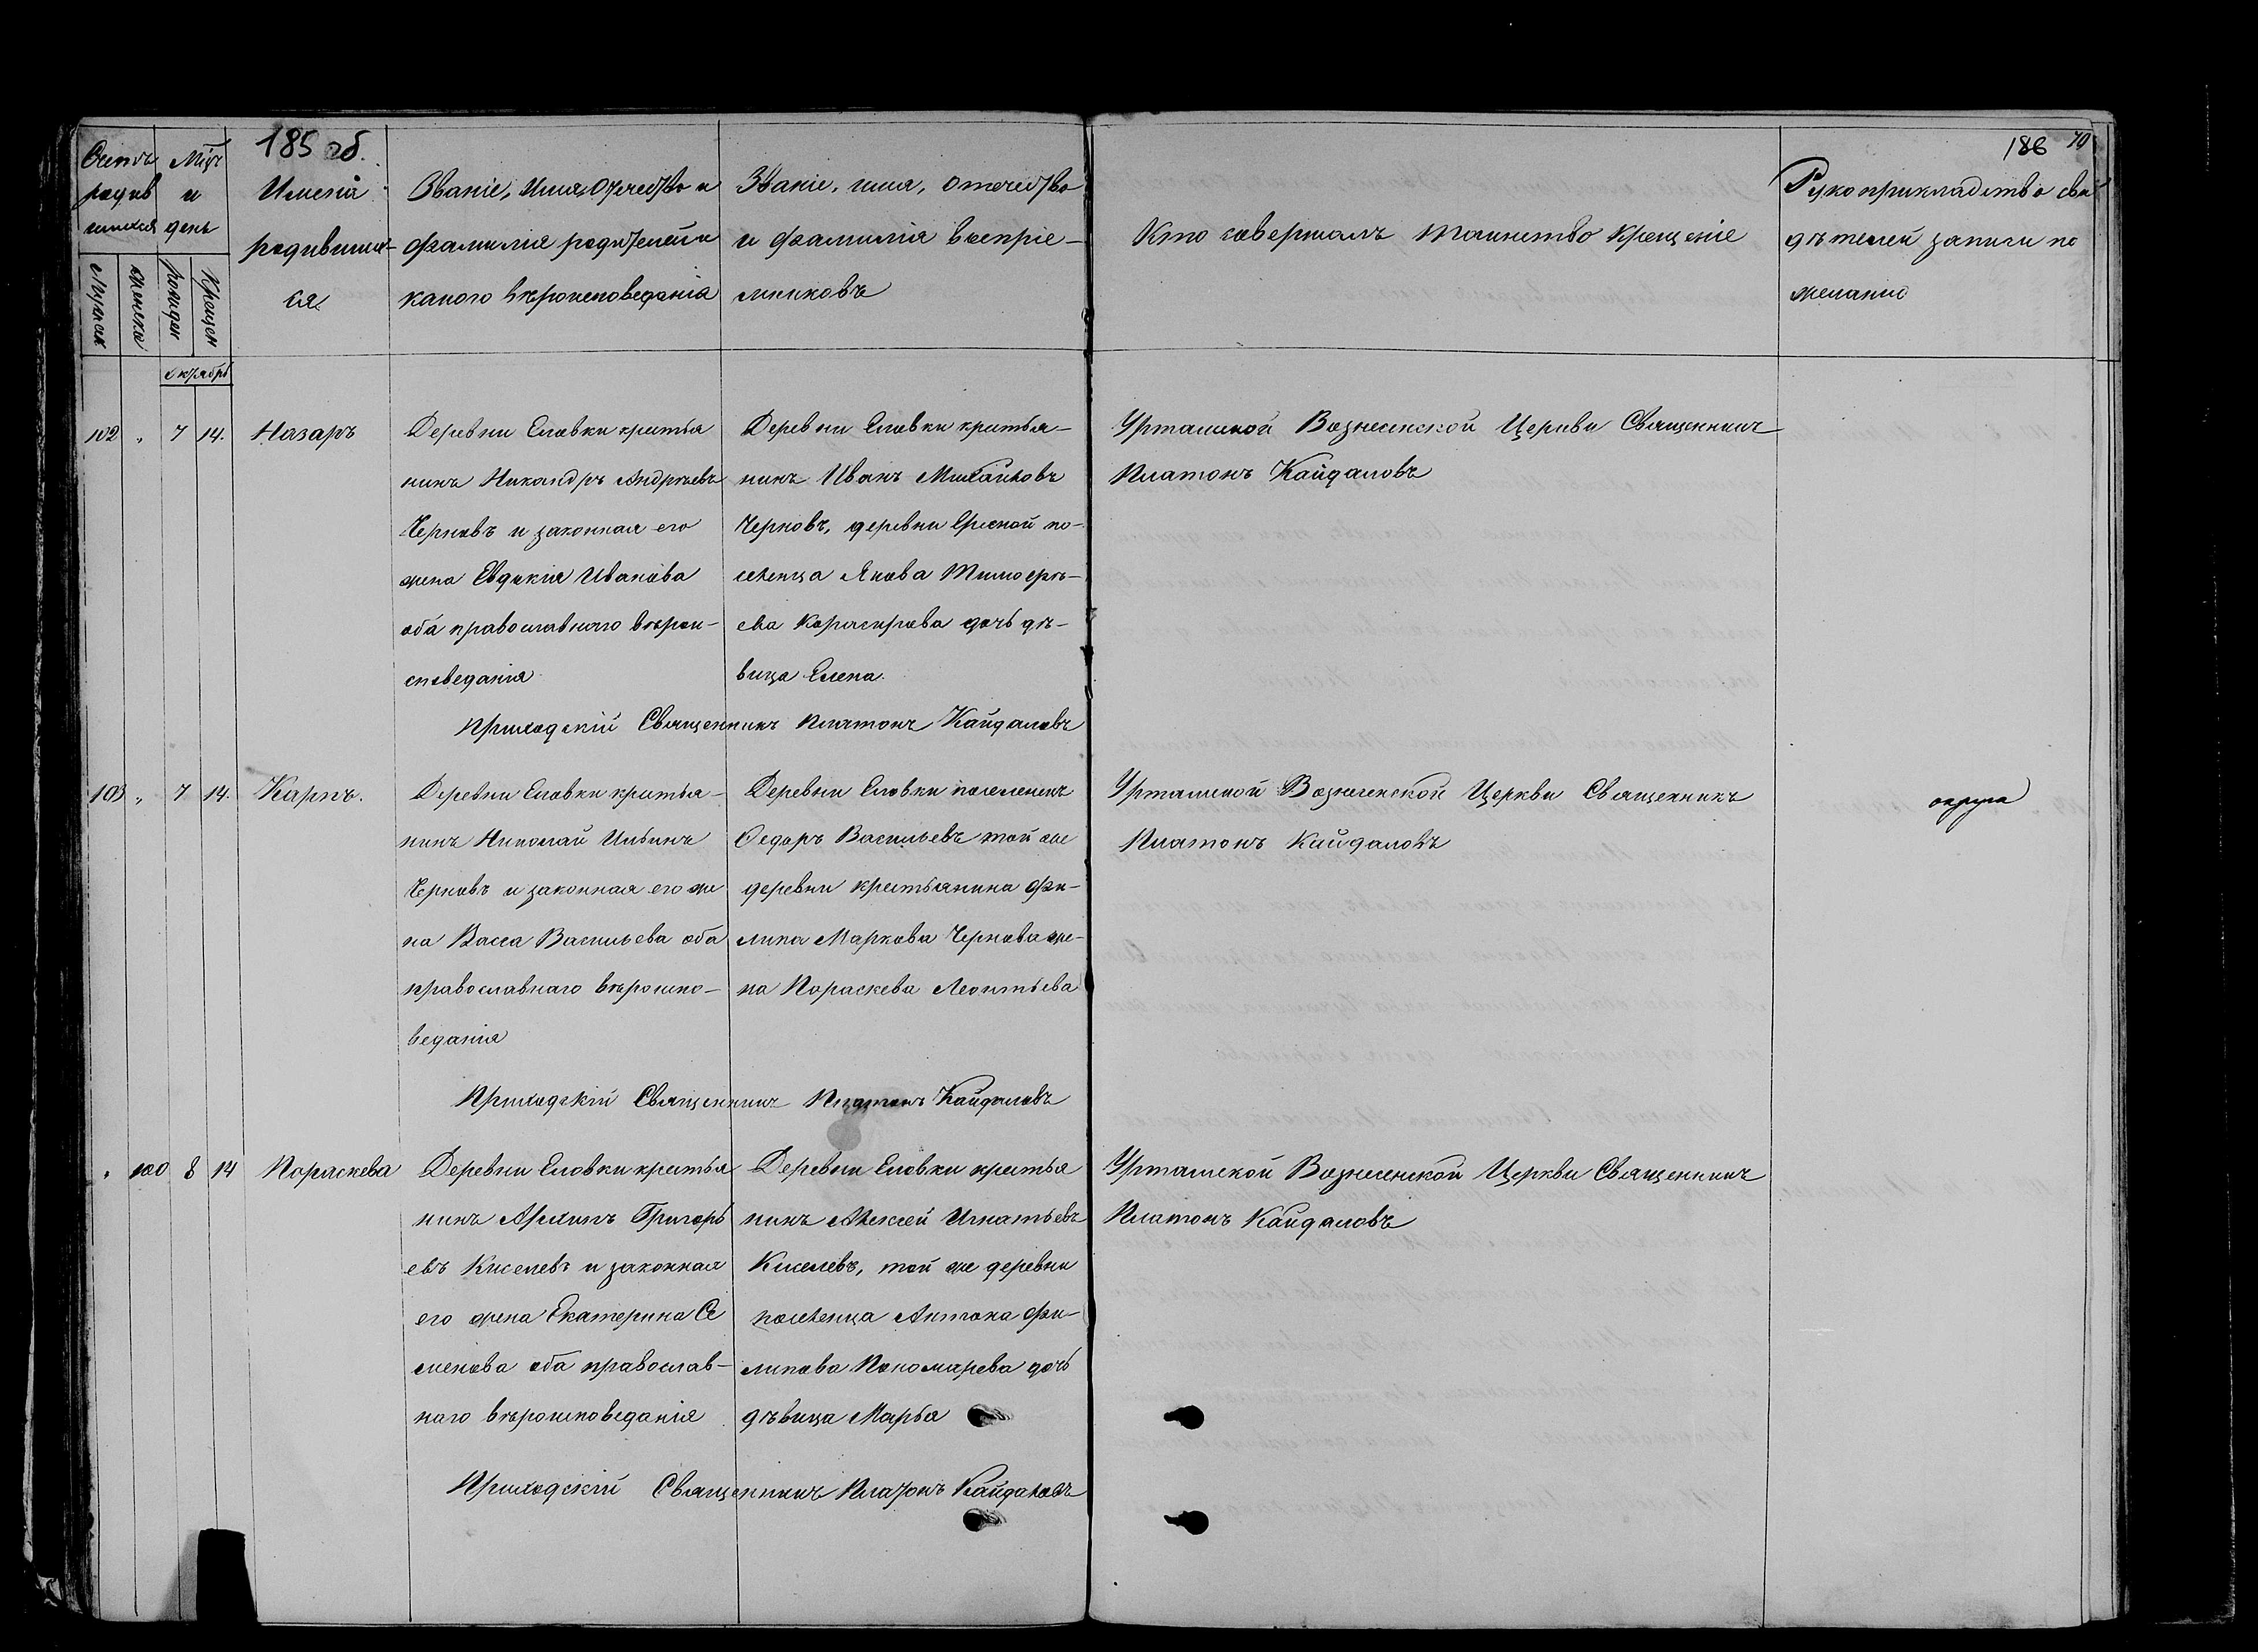 185 об.
186 70
Счетъ
родив
шихся
Мѣц
и
день
Имена
родивших
ся
Званіе, имя, отчество и
фамилія родителей и
какого вѣроисповеданія
Званіе, имя, отчество
и фамилія воспріе-
мниковъ
Кто совершалъ таинство крещеніе
Рукоприкладство сви
дѣтелей записи по
желанію
Мужеск
женска
рожден
Крещен
октябрь
102 „ 7 14. Назаръ
Деревни Еловки крестья
нинъ Никандръ Андреевъ
Черновъ и законная его
жена Евдокія Иванова
оба православнаго вѣрои-
споведанія
Деревни Еловки крестья-
нинъ Иванъ Михайловъ
Черновъ, деревни Ересной по-
селенца Якова Тимофѣ-
ева дочь дѣ-
вица Елена.
Урташской Вознесенской Церкви Священникъ
Платонъ Кайдаловъ
Приходскій Священникъ Платонъ Кайдаловъ
103 „ 7 14. Карпъ.
Деревни Еловки крестья-
нинъ Николай Ильинъ
Черновъ и законная его же
на Васса Васильева оба
православнаго вѣроиспо-
веданія
Деревни Еловки поселенецъ
Федоръ Васильевъ той же
деревни крестьянина Фи-
липа Маркова Чернова же-
на Параскева Леонтьева
Урташской Вознесенской Церкви Священникъ
Платонъ Кайдаловъ
округа
Приходскій Священникъ Платонъ Кайдаловъ
„ 100 8 14 Параскева
Деревни Еловки крестья
нинъ Архипъ Григорь
евъ Киселевъ и законная
его жена Екатерина Се
менова оба православ-
наго вѣроисповеданія
Деревни Еловки крестья
нинъ Алексей Игнатьевъ
Киселевъ, той же деревни
поселенца Антона Фи-
липова Пономарева дочь
дѣвица Марья
Урташской Вознесенской Церкви Священникъ
Платонъ Кайдаловъ
Приходскій Священникъ Платонъ Кайдаловъ